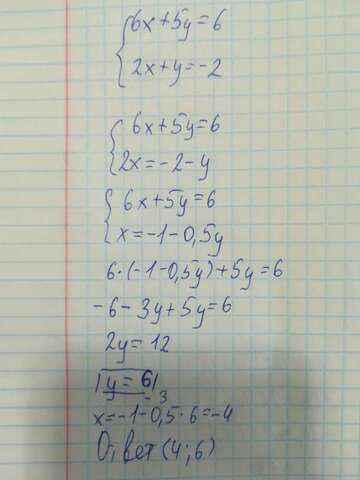 6x+5y=6
2x+y=-2
6x+5y=6
2x=-2-y
6x+5y=6
x=-1-0,5y
6·(-1-0,5y)+5y=6
-6-3y+5y=6
2y=12
y=6
-3
x=-1-0,5·6=-4
Ответ (4;6)